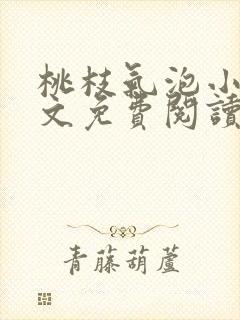 桃枝氣泡小
文免費閱讀
青藤葫蘆